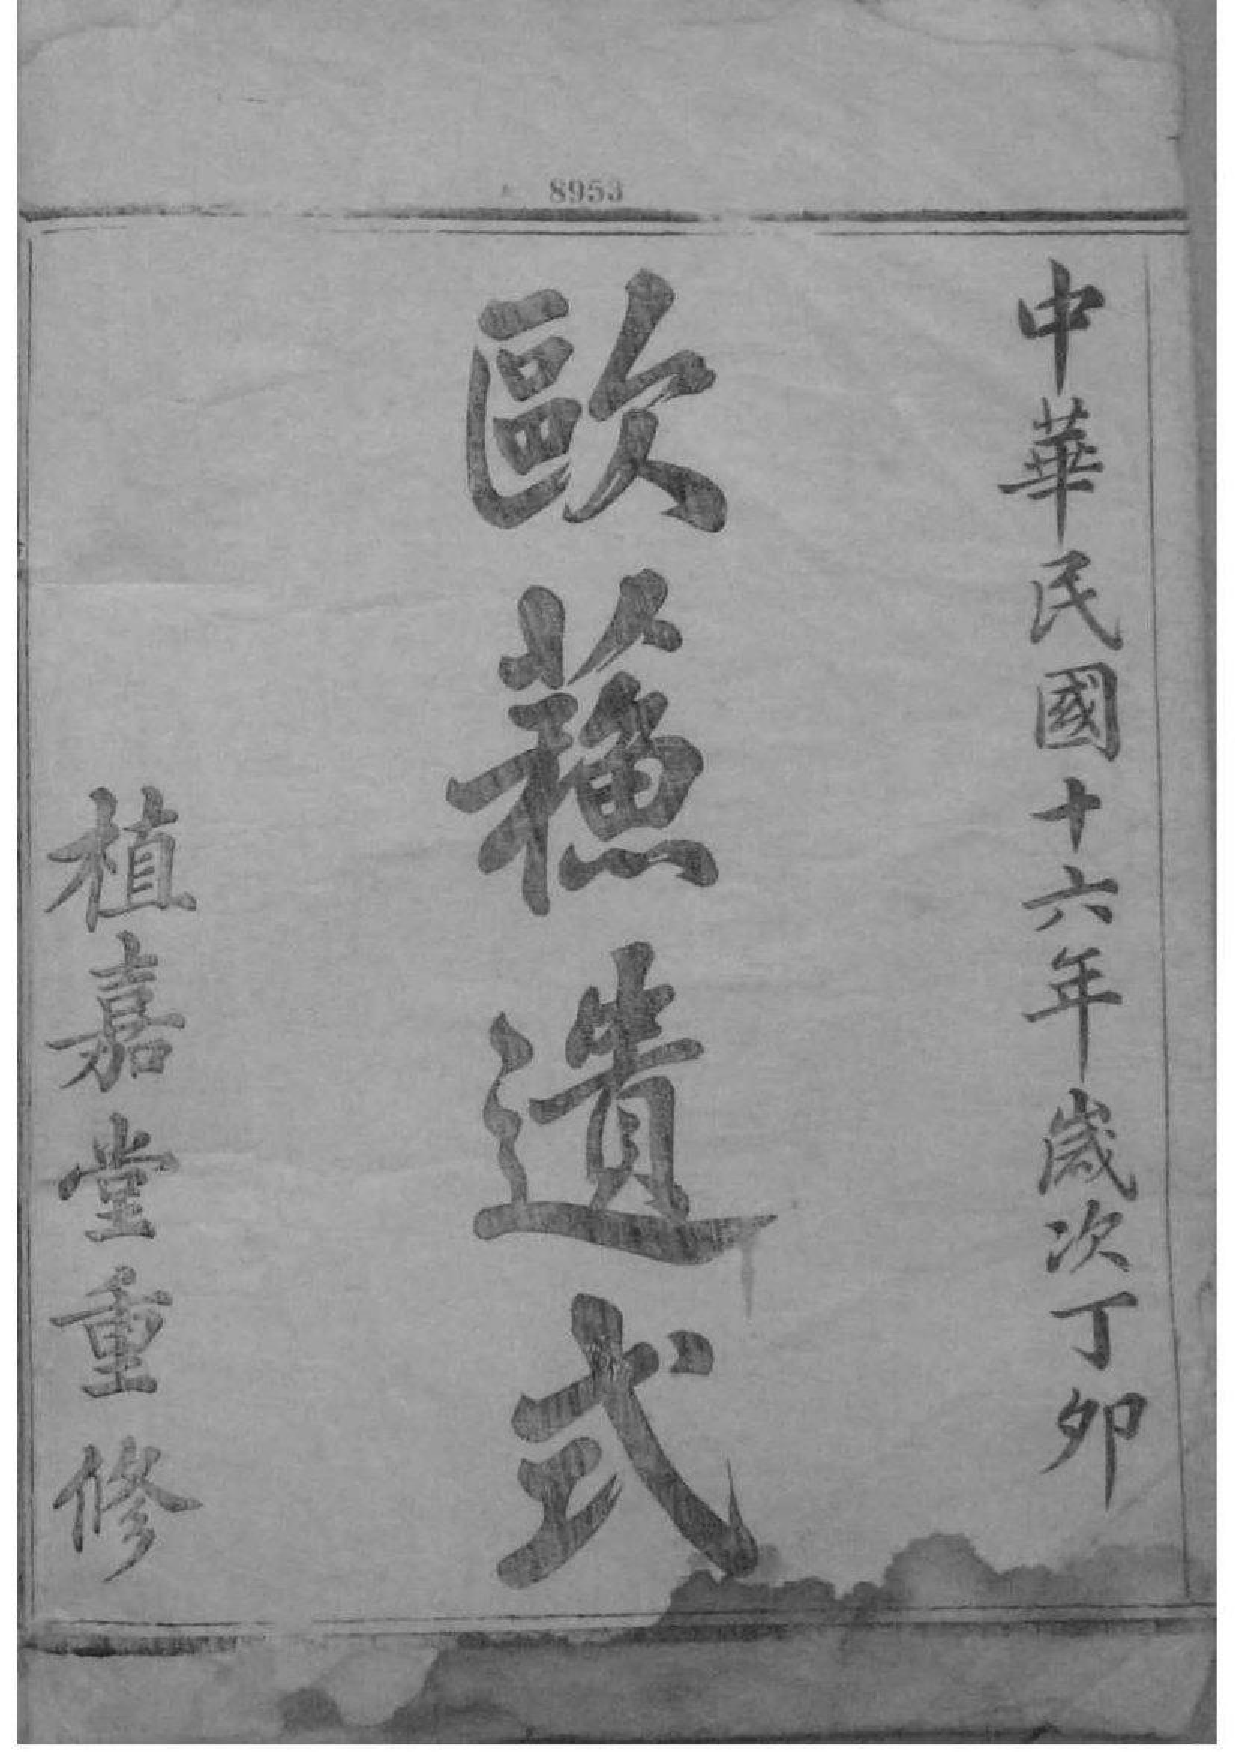 8953
中華民國十六年歲次丁卯
歐蘓遺式
植嘉堂重修